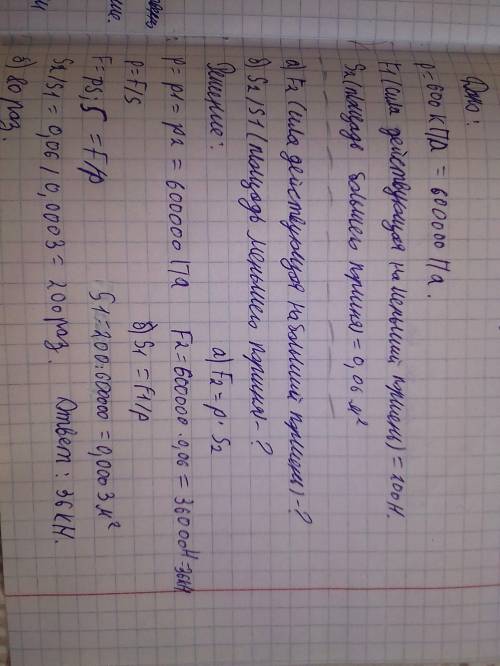 Дано:
p = 600 кПа = 600000 Па.
F1 (сила действующая на меньший поршень) = 200 Н.
S2 (площадь большего поршня) = 0,06 м²
а) F2 (сила действующая на больший поршень) - ?
б) S2/S1 (площадь меньшего поршня) - ?
Решение:
p = p1 = p2 = 600000 Па
p = F/S
F = ps; S = F/p
а) F2 = p · S2
F2 = 600000 · 0,06 = 36000Н = 36кН
б) S1 = F1/p
S1 = 200:600000 = 0,0003 м²
S2/S1 = 0,06 / 0,0003 = 200 раз.
Ответ: 36 кН.
б) 80 раз.